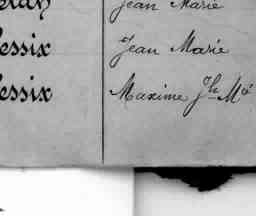 Jean Marie
essix Jean Marie
essix Maxime Jh Mé